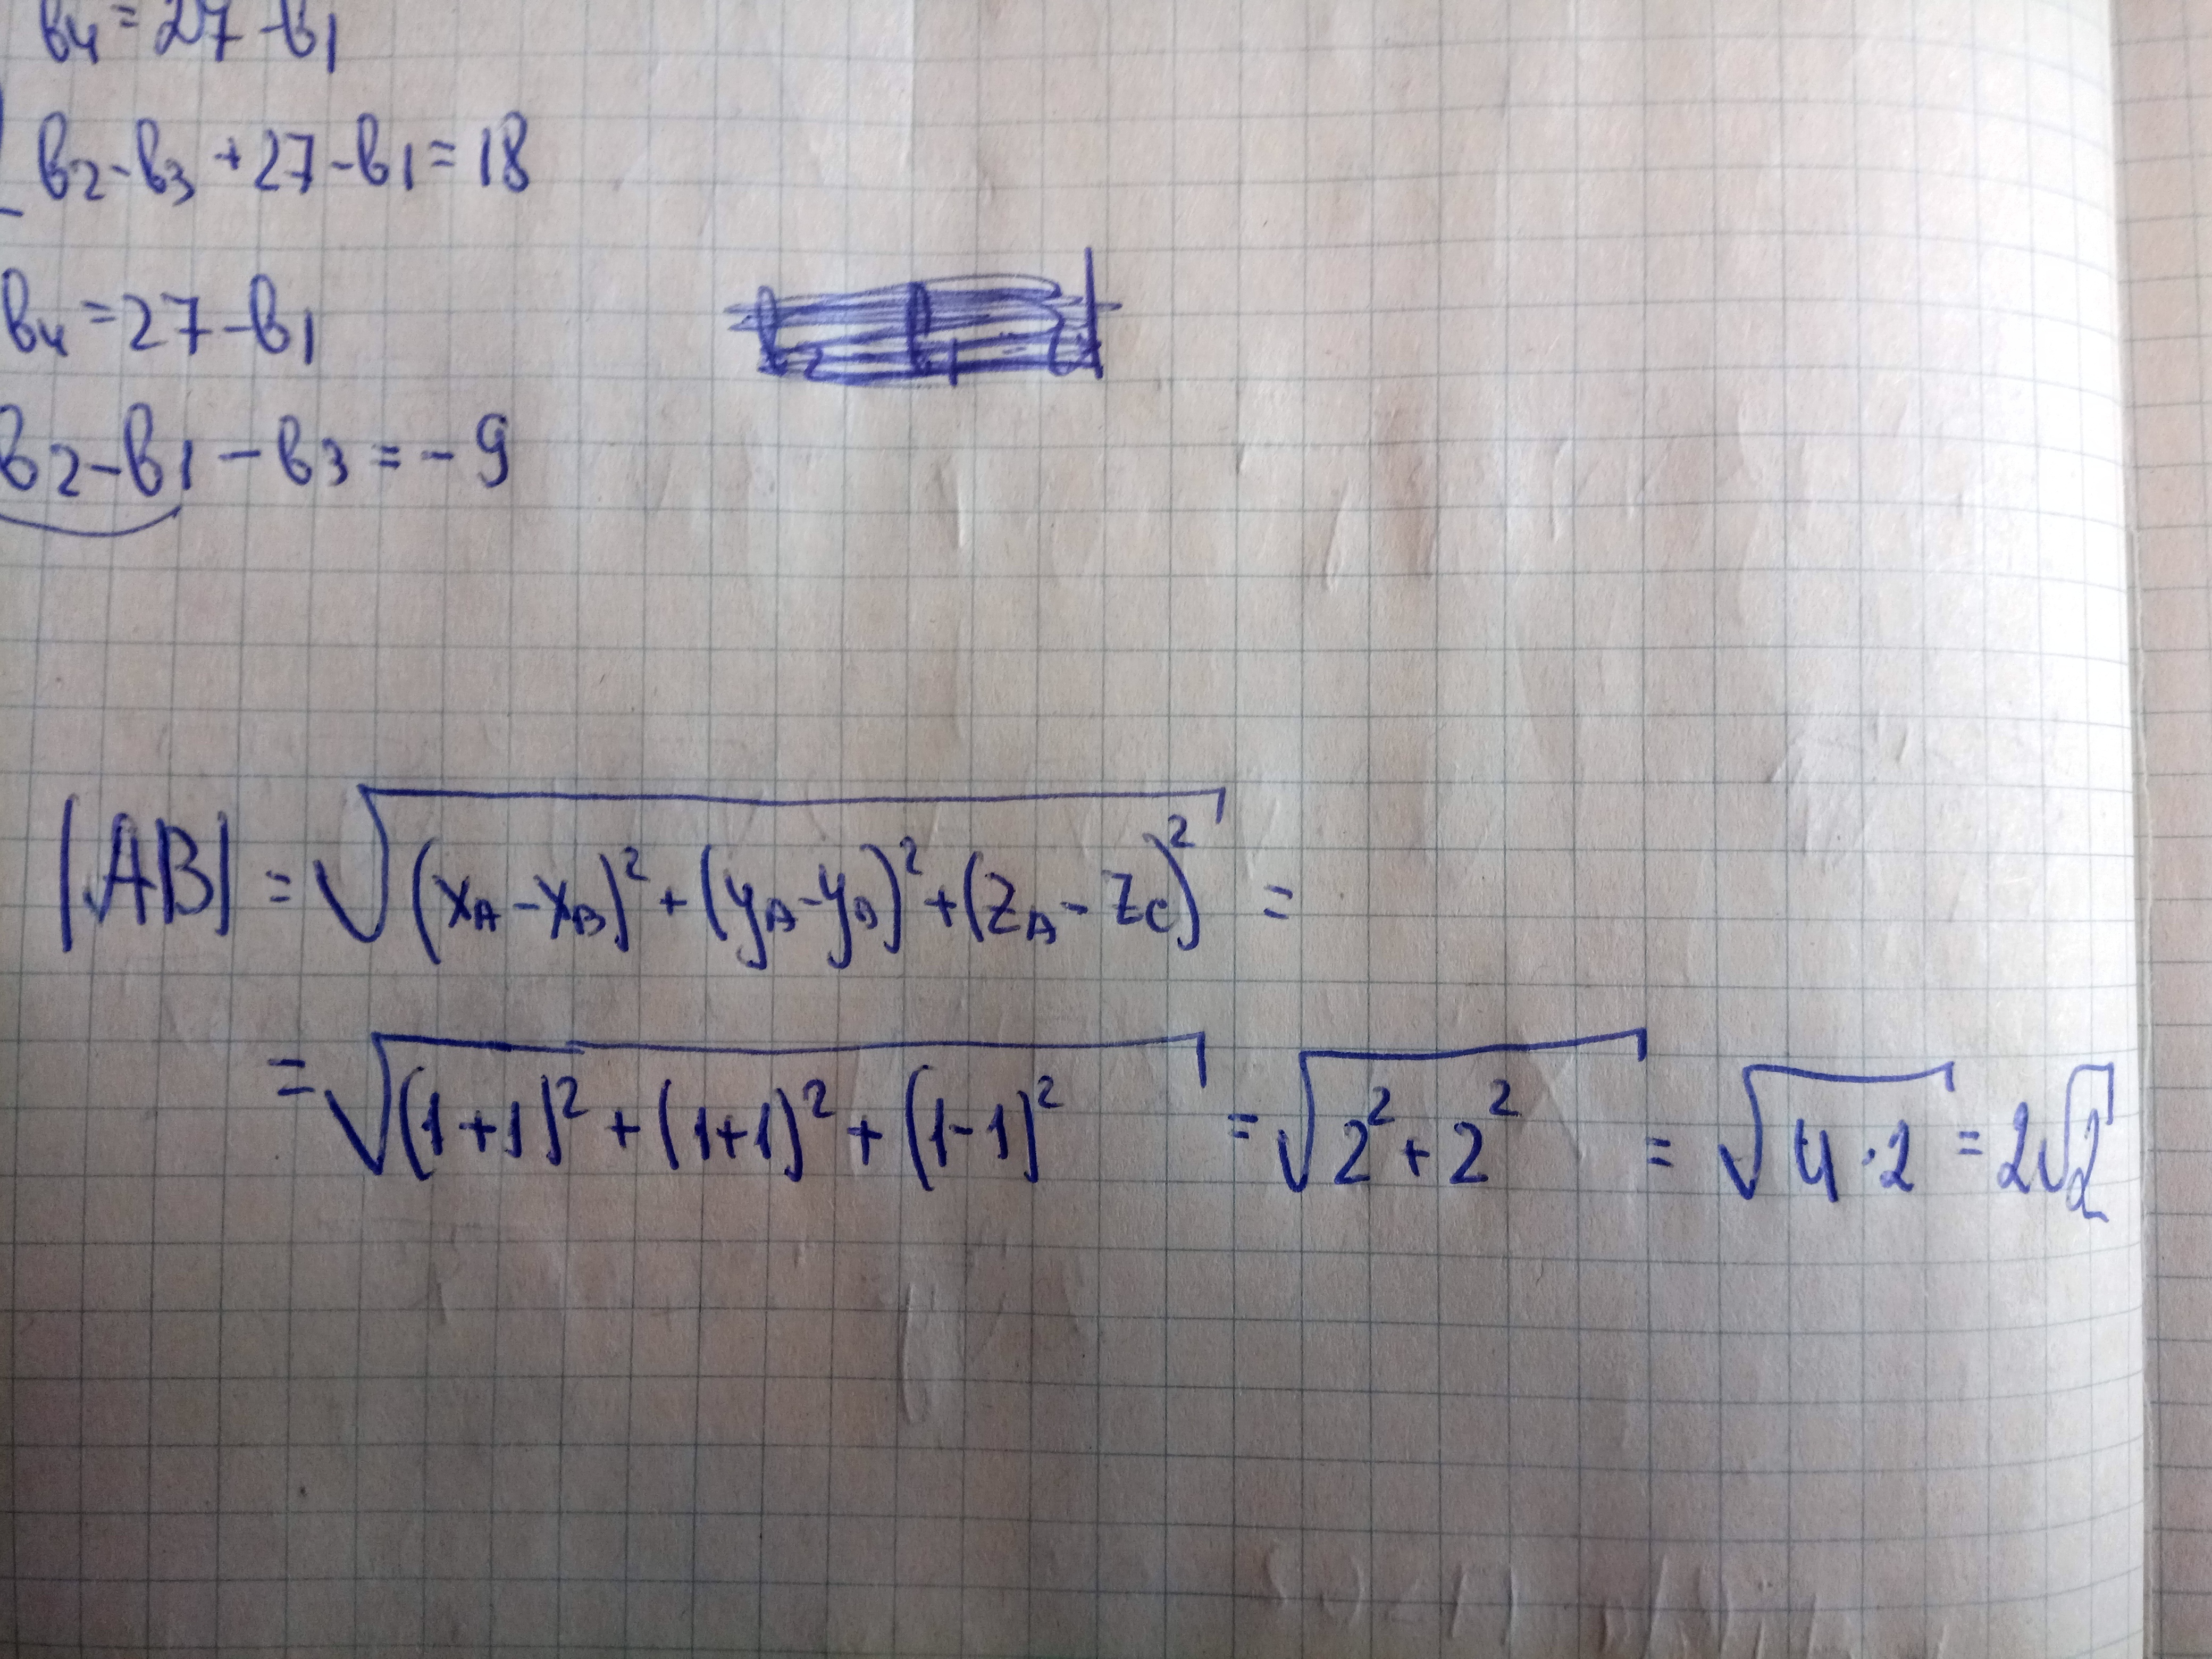 b₄ = 27 - b₁
b₂ - b₃ + 27 - b₁ = 18
b₄ = 27 - b₁
b₂ - b₁ - b₃ = - 9
|AB| = √((x_A - x_B)² + (y_A - y_B)² + (z_A - z_C)²) =
= √((1+1)² + (1+1)² + (1-1)²) = √(2² + 2²) = √(4·2) = 2√2